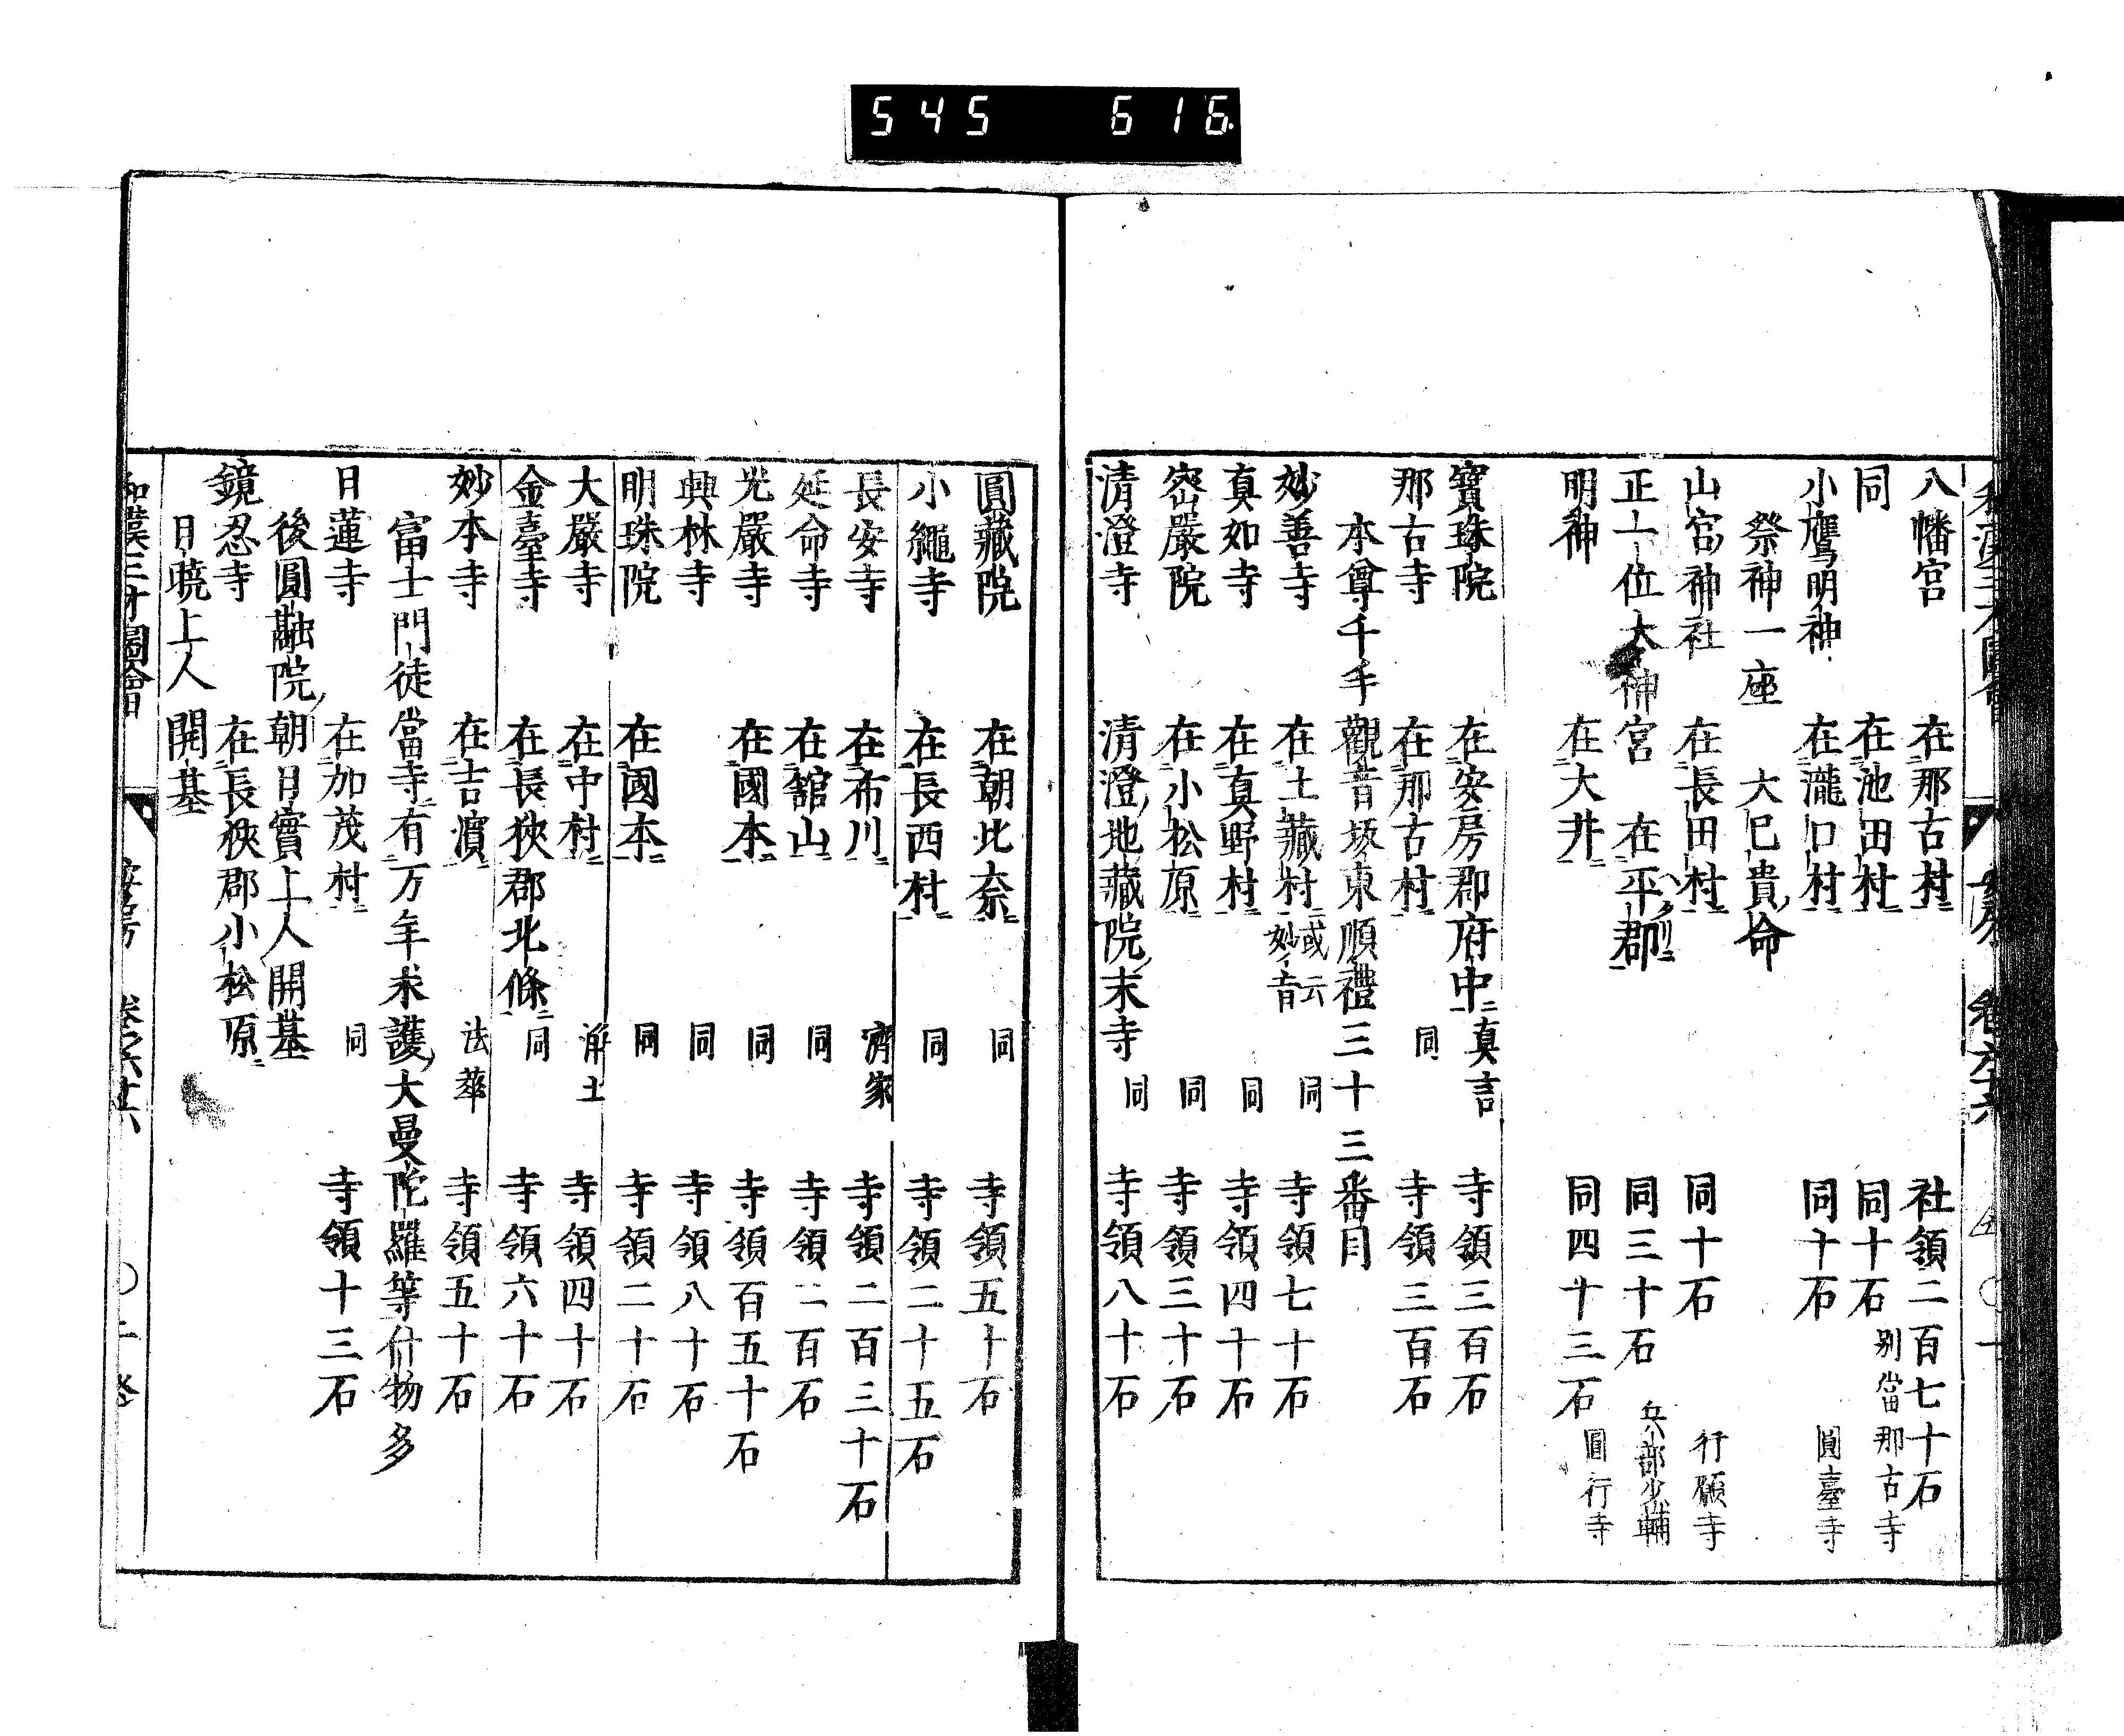 545 616
和漢三才圖會 安房 卷六十六
八幡宮 在那古村 社領二百七十石
同 在池田村 同十石 別當那古寺
小鷹明神 在瀧口村 同十石 圓臺寺
祭神一座 大巳貴命
山宮神社 在長田村 同十石 行願寺
正一位大神宮 在平郡 同三十石 兵部少輔
明神 在大井 同四十三石 圓行寺
寶珠院 在安房郡府中 真言 寺領三百石
那古寺 在那古村 同 寺領三百石
本尊千手觀音坂東順禮三十三番目
妙善寺 在土藏村 或云妙音 同 寺領七十石
真如寺 在真野村 同 寺領四十石
密嚴院 在小松原 同 寺領三十石
清澄寺 清澄地藏院末寺 同 寺領八十石
圓藏院 在朝比奈 同 寺領五十石
小繩寺 在長西村 同 寺領二十五石
長安寺 在布川 濟家 寺領二百三十石
延命寺 在舘山 同 寺領二百石
光嚴寺 在國本 同 寺領百五十石
興林寺 同 寺領八十石
明珠院 在國本 同 寺領二十石
大嚴寺 在中村 淨土 寺領四十石
金臺寺 在長狹郡北條 同 寺領六十石
妙本寺 在吉濱 法華 寺領五十石
富士門徒當寺有万年求護大曼陀羅等什物多
日蓮寺 在加茂村 同 寺領十三石
後圓融院朝日寶上人開基
鏡忍寺 在長狹郡小松原
日曉上人開基
和漢三才圖會 安房 卷之六十六